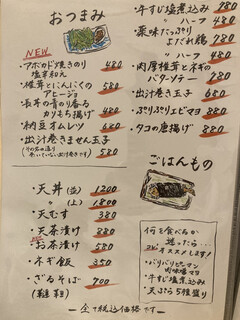 おつまみ
NEW
・アボカド焼きのり
塩辛和え 480
・椎茸とにんにくの
アヒージョ 680
・長芋の青のり香る
カリもち揚げ 480
・納豆オムレツ 680
・出汁巻きません玉子 580
・天丼(並) 1200
〃(上) 1800
・天むす 380
・天茶漬け 880
・お茶漬け 580
・ネギ飯 350
・ざるそば 700
・牛すじ塩煮込み 780
〃 ハーフ 480
・薬味たっぷり
よだれ鶏 780
〃 ハーフ 480
・肉厚椎茸とネギの
バターソテー 780
・出汁巻き玉子 680
・ぷりぷりエビマヨ 880
・タコの唐揚げ 680
ごはんもの
何を食べるか
迷ったら…
コレ、オススメします!
・バリバリピーマン
肉味噌マヨ
・牛すじ塩煮込み
・天ぷら5種盛り
―全て税込価格です―